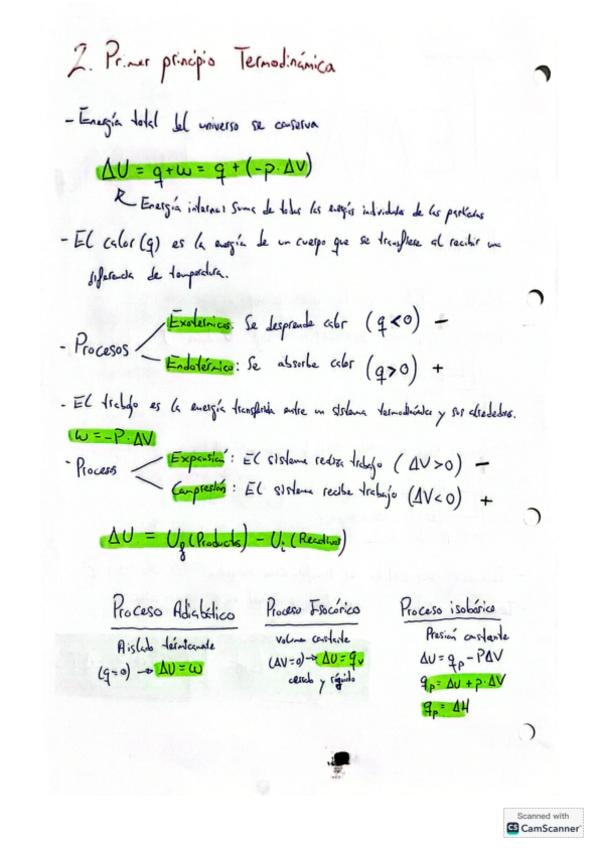 2. Primer principio Termodinámica
- Energía total del universo se conserva
ΔU = q + w = q + (-p · ΔV)
Energía interna: Suma de todas las energías individuales de las partículas
- El calor (q) es la energía de un cuerpo que se transfiere al recibir una
diferencia de temperatura.
- Procesos
Exotérmicos: Se desprende calor (q<0) -
Endotérmico: Se absorbe calor (q>0) +
- El trabajo es la energía transferida entre un sistema termodinámico y sus alrededores.
w = -P · ΔV
- Procesos
Expansión: El sistema realiza trabajo (ΔV>0) -
Compresión: El sistema recibe trabajo (ΔV<0) +
ΔU = Uf (Products) - Ui (Reactivos)
Proceso Adiabático
Aislado térmicamente
(q=0) → ΔU = w
Proceso Isocórico
Volumen constante
(ΔV=0) → ΔU = qv
cerrado y rígido
Proceso isobárico
Presión constante
ΔU = qp - PΔV
qp = ΔU + p · ΔV
qp = ΔH
Scanned with
CS CamScanner